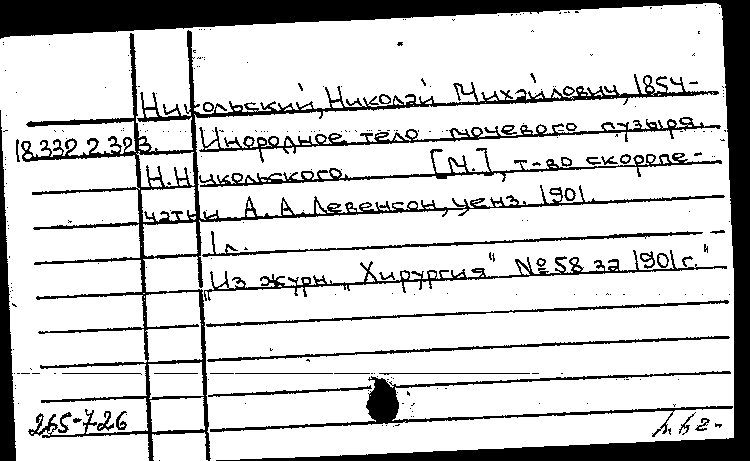 Никольский, Николай Михайлович, 1854-
18.332.2.323. Инородное тело мочевого пузыря.
Н. Никольского. [М.], т-во скоропе-
чатни А. А. Левенсон, ценз. 1901.
1 л.
"Из журн. "Хирургия" № 58 за 1901 г."
265-726